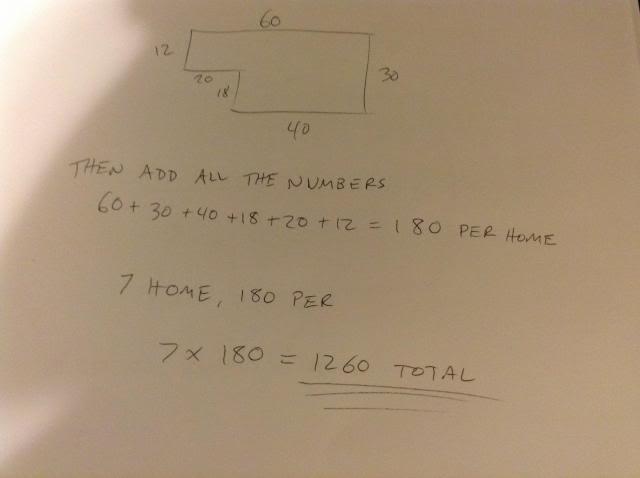 60
12
30
20
18
40
THEN ADD ALL THE NUMBERS
60 + 30 + 40 + 18 + 20 + 12 = 180 PER HOME
7 HOME, 180 PER
7 x 180 = 1260 TOTAL